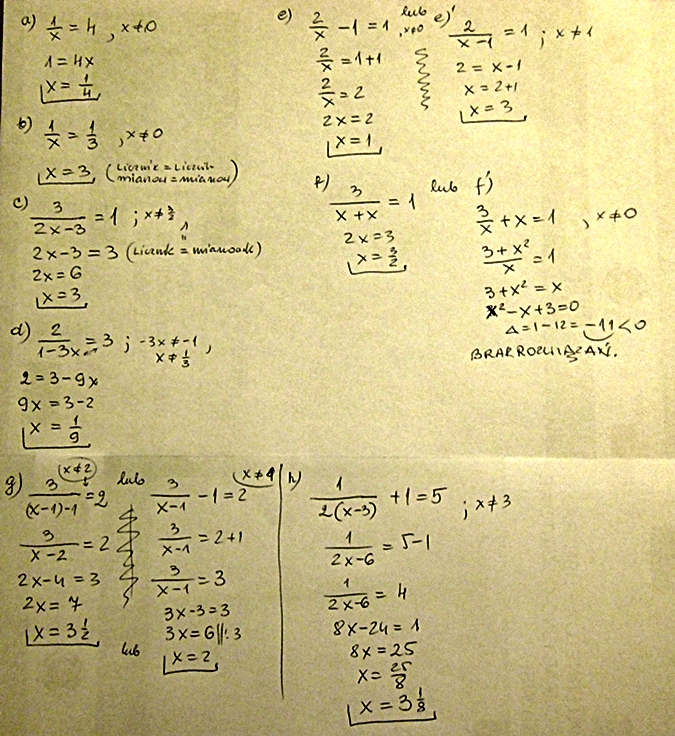 a) 1/x = 4 , x≠0
1 = 4x
x = 1/4
b) 1/x = 1/3 , x≠0
x = 3 (licznik = licznik
mianow = mianow)
c) 3/(2x-3) = 1 ; x≠3/2 ,
2x-3 = 3 (licznik = mianownik)
2x = 6
x = 3
d) 2/(1-3x) = 3 ; -3x ≠ -1
x ≠ 1/3 ,
2 = 3-9x
9x = 3-2
x = 1/9
e) 2/x - 1 = 1 , x≠0
2/x = 1+1
2/x = 2
2x = 2
x = 1
lub
e)' 2/(x-1) = 1 ; x≠1
2 = x-1
x = 2+1
x = 3
f) 3/(x+x) = 1
2x = 3
x = 3/2
lub
f') 3/x + x = 1 , x≠0
(3+x²)/x = 1
3+x² = x
x²-x+3=0
Δ=1-12=-11<0
BRAK ROZWIĄZAŃ.
g) x≠2
3/((x-1)-1) = 2
3/(x-2) = 2
2x-4 = 3
2x = 7
x = 3 1/2
lub
x≠1
3/(x-1) - 1 = 2
3/(x-1) = 2+1
3/(x-1) = 3
3x-3 = 3
3x = 6 ||:3
lub
x = 2
h) 1/(2(x-3)) + 1 = 5 ; x≠3
1/(2x-6) = 5-1
1/(2x-6) = 4
8x-24 = 1
8x = 25
x = 25/8
x = 3 1/8